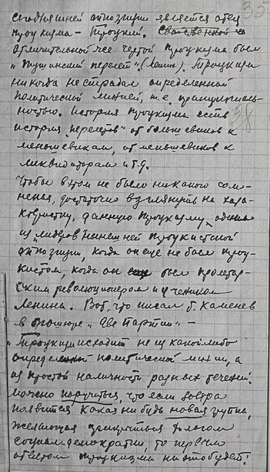 35
сегодняшней оппозиции является отец
троцкизма – Троцкий.
отличительной чертой троцкизма был
"Тушинский перелет" (Ленин). Троцкизм
никогда не страдал определенной
политической линией, т.е. принципиаль-
ностью. История троцкизма есть
история "перелетов" от большевиков к
меньшевикам от меньшевиков к
ликвидаторам и т.д.
Чтобы в этом не было никакого сом-
нения, достаточно взглянуть на хара-
ктеристику, данную троцкизму одним
из лидеров теперешней троцкистской
оппозиции, когда он еще не был троц-
кистом, когда он был пролетар-
ским революционером и учеником
Ленина. Вот, что писал т. Каменев
в брошюре "Две партии" –
"Троцкизм исходит не из какой либо
определенной политической линии, а
из простой наличности разных течений.
Можно поручиться, что если завтра
появится какая нибудь новая группа,
желающая прицепиться
социал демократии, то первым
ответом троцкизма